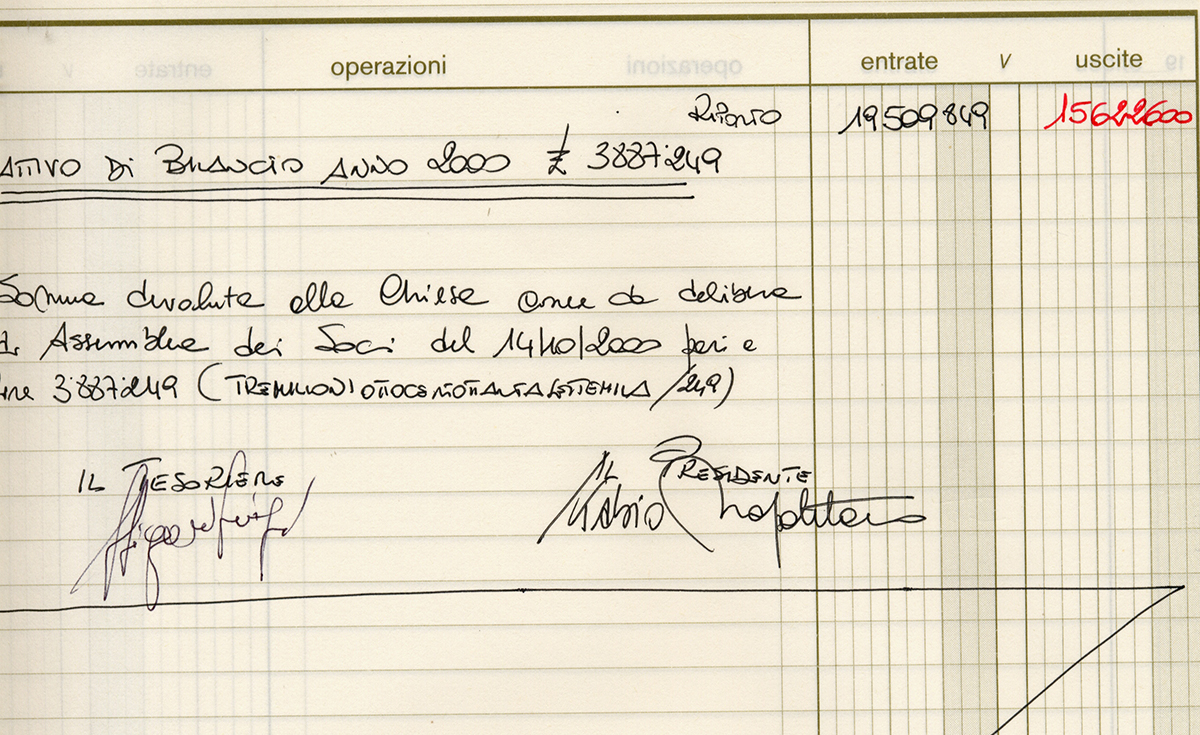 operazioni entrate V uscite
Riporto 19509849 15622600
ATTIVO Di BILANCIO ANNO 2000 £ 3887·249
Somma devoluta alla Chiesa come da delibera
di Assemblea dei Soci del 14/10/2000 pari a
3·887·249 (TREMILIONIOTTOCENTOTTANTASETTEMILA/249)
IL TESORIERE IL PRESIDENTE
Fabio Napolitano